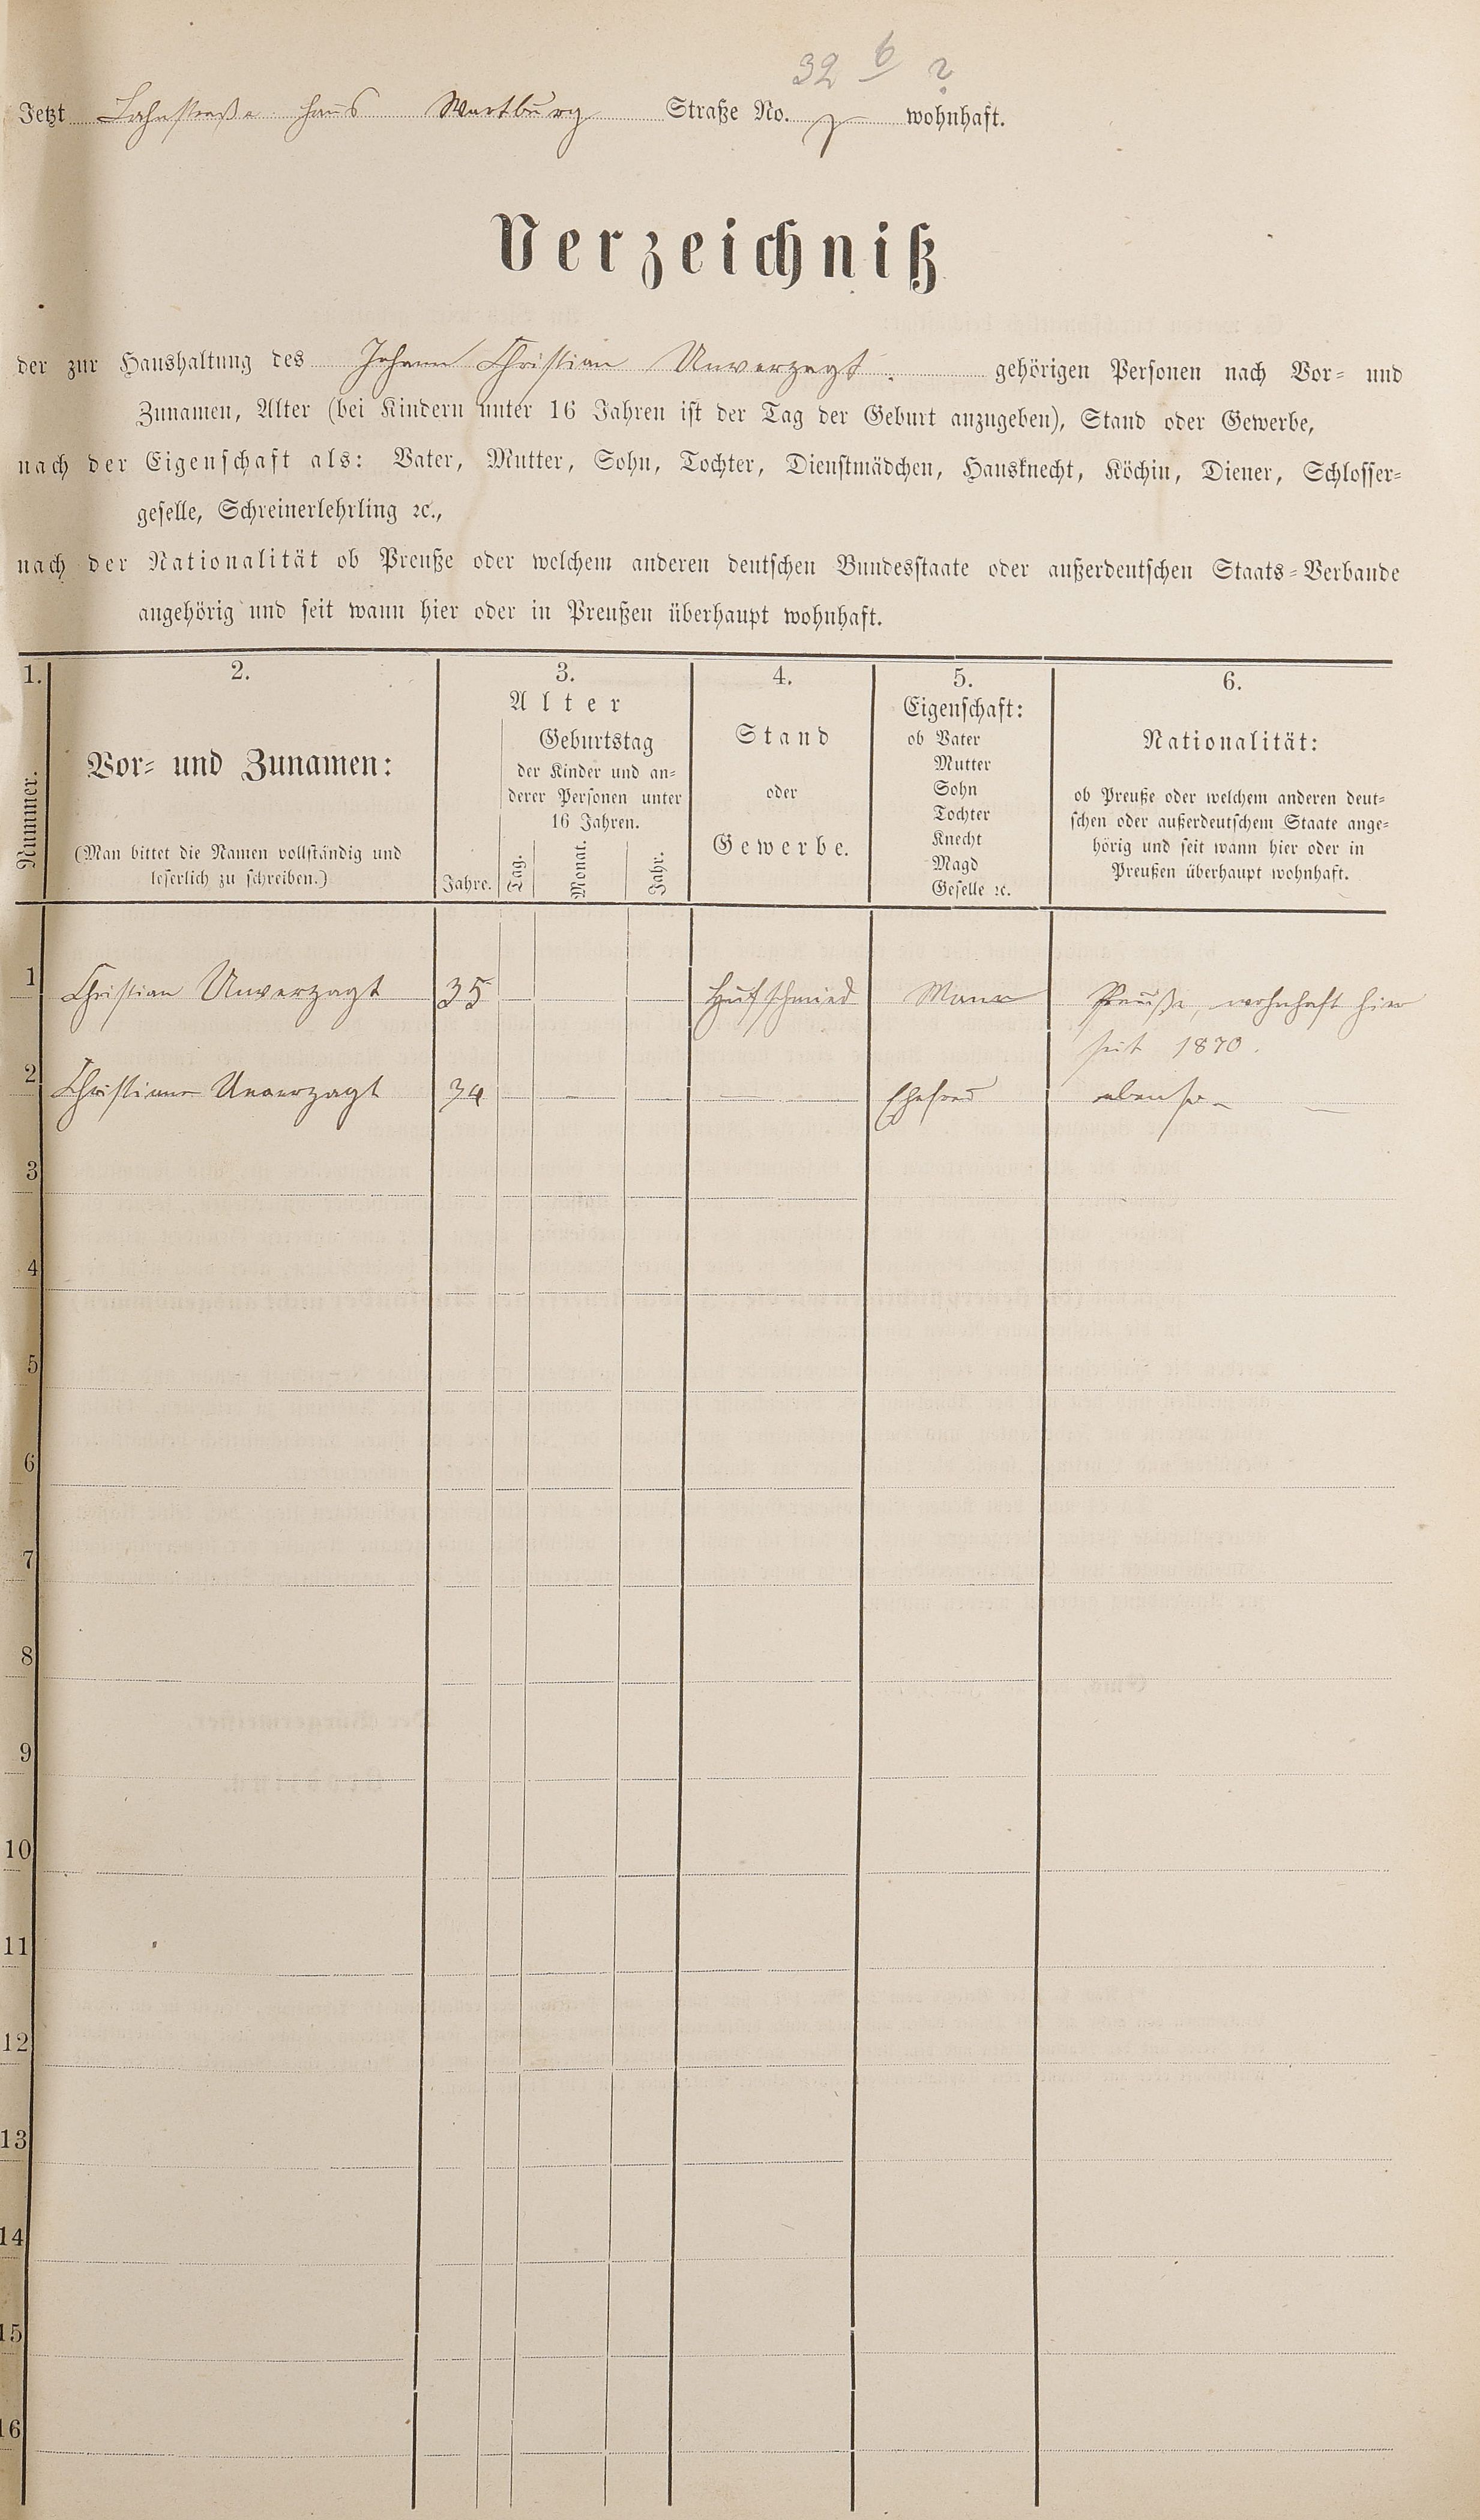 32 6 ?
Jetzt Lahnstraße Haus Wartburg Straße No. 7 wohnhaft.
Verzeichniß
der zur Haushaltung des Johann Christian Unverzagt. gehörigen Personen nach Vor- und
Zunamen, Alter (bei Kindern unter 16 Jahren ist der Tag der Geburt anzugeben), Stand oder Gewerbe,
nach der Eigenschaft als: Vater, Mutter, Sohn, Tochter, Dienstmädchen, Hausknecht, Köchin, Diener, Schlosser-
geselle, Schreinerlehrling ꝛc.,
nach der Nationalität ob Preuße oder welchem anderen deutschen Bundesstaate oder außerdeutschen Staats-Verbande
angehörig und seit wann hier oder in Preußen überhaupt wohnhaft.
1. 2. 3. 4. 5. 6.
Nummer.
Vor- und Zunamen:
(Man bittet die Namen vollständig und
leserlich zu schreiben.)
Alter
Jahre.
Geburtstag
der Kinder und an-
derer Personen unter
16 Jahren.
Tag. Monat. Jahr.
Stand
oder
Gewerbe.
Eigenschaft:
ob Vater
Mutter
Sohn
Tochter
Knecht
Magd
Geselle ꝛc.
Nationalität:
ob Preuße oder welchem anderen deut-
schen oder außerdeutschem Staate ange-
hörig und seit wann hier oder in
Preußen überhaupt wohnhaft.
1 Christian Unverzagt 35 — — — Hufschmied Mann Preuße, wohnhaft hier
seit 1870.
2 Christiane Unverzagt 34 — — Ehefrau ebenso —
3
4
5
6
7
8
9
10
11
12
13
14
15
16